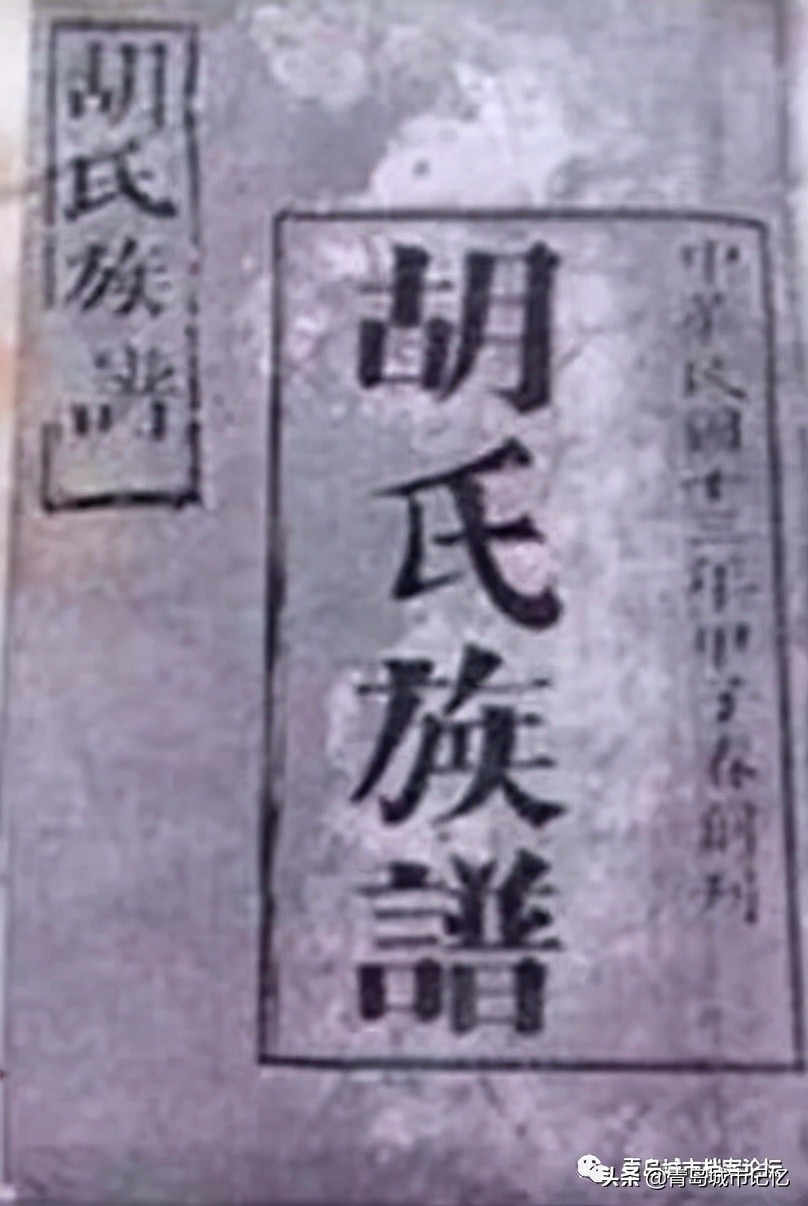 中華民國十三年甲子春刊
胡氏族譜
胡氏族譜
青岛城市档案论坛
头条 @青岛城市记忆